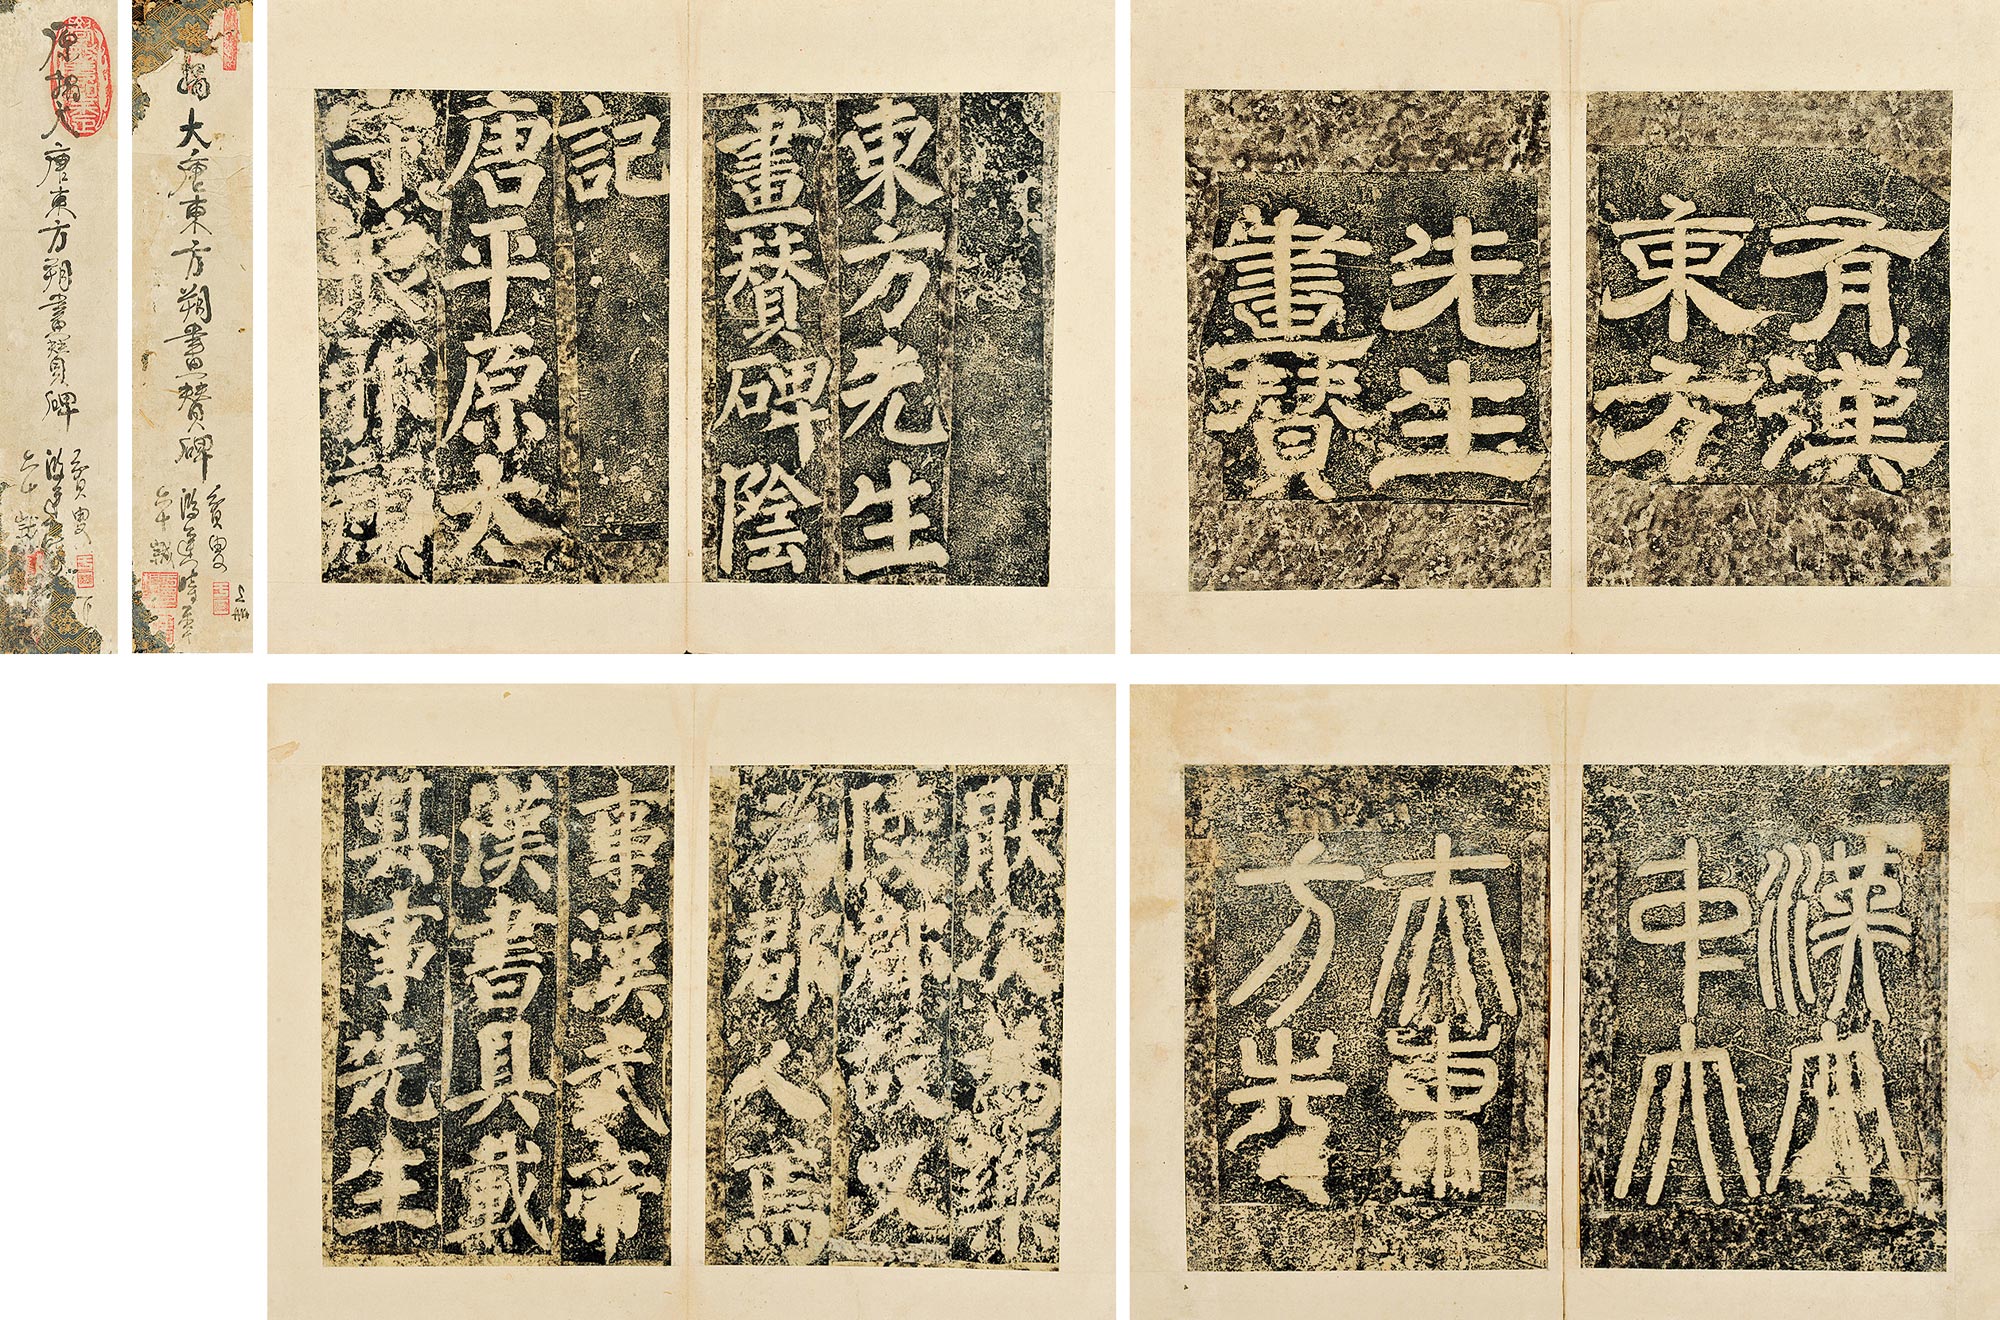 原搨大唐東方朔畫贊碑
搨大唐東方朔畫贊碑
上冊
東方先生
畫贊碑陰
記
唐平原太
守琅邪顏
有漢
東方
先生
畫贊
猒次為樂
陵郡故又
為郡人焉
事漢武帝
漢書具載
其事先生
漢太
中大
夫東
方先